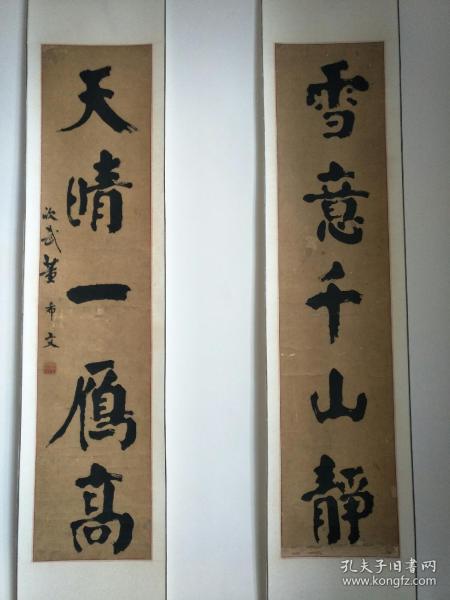 雪意千山靜
天晴一鴈高
次武董希文
孔夫子旧书网
www.kongfz.com